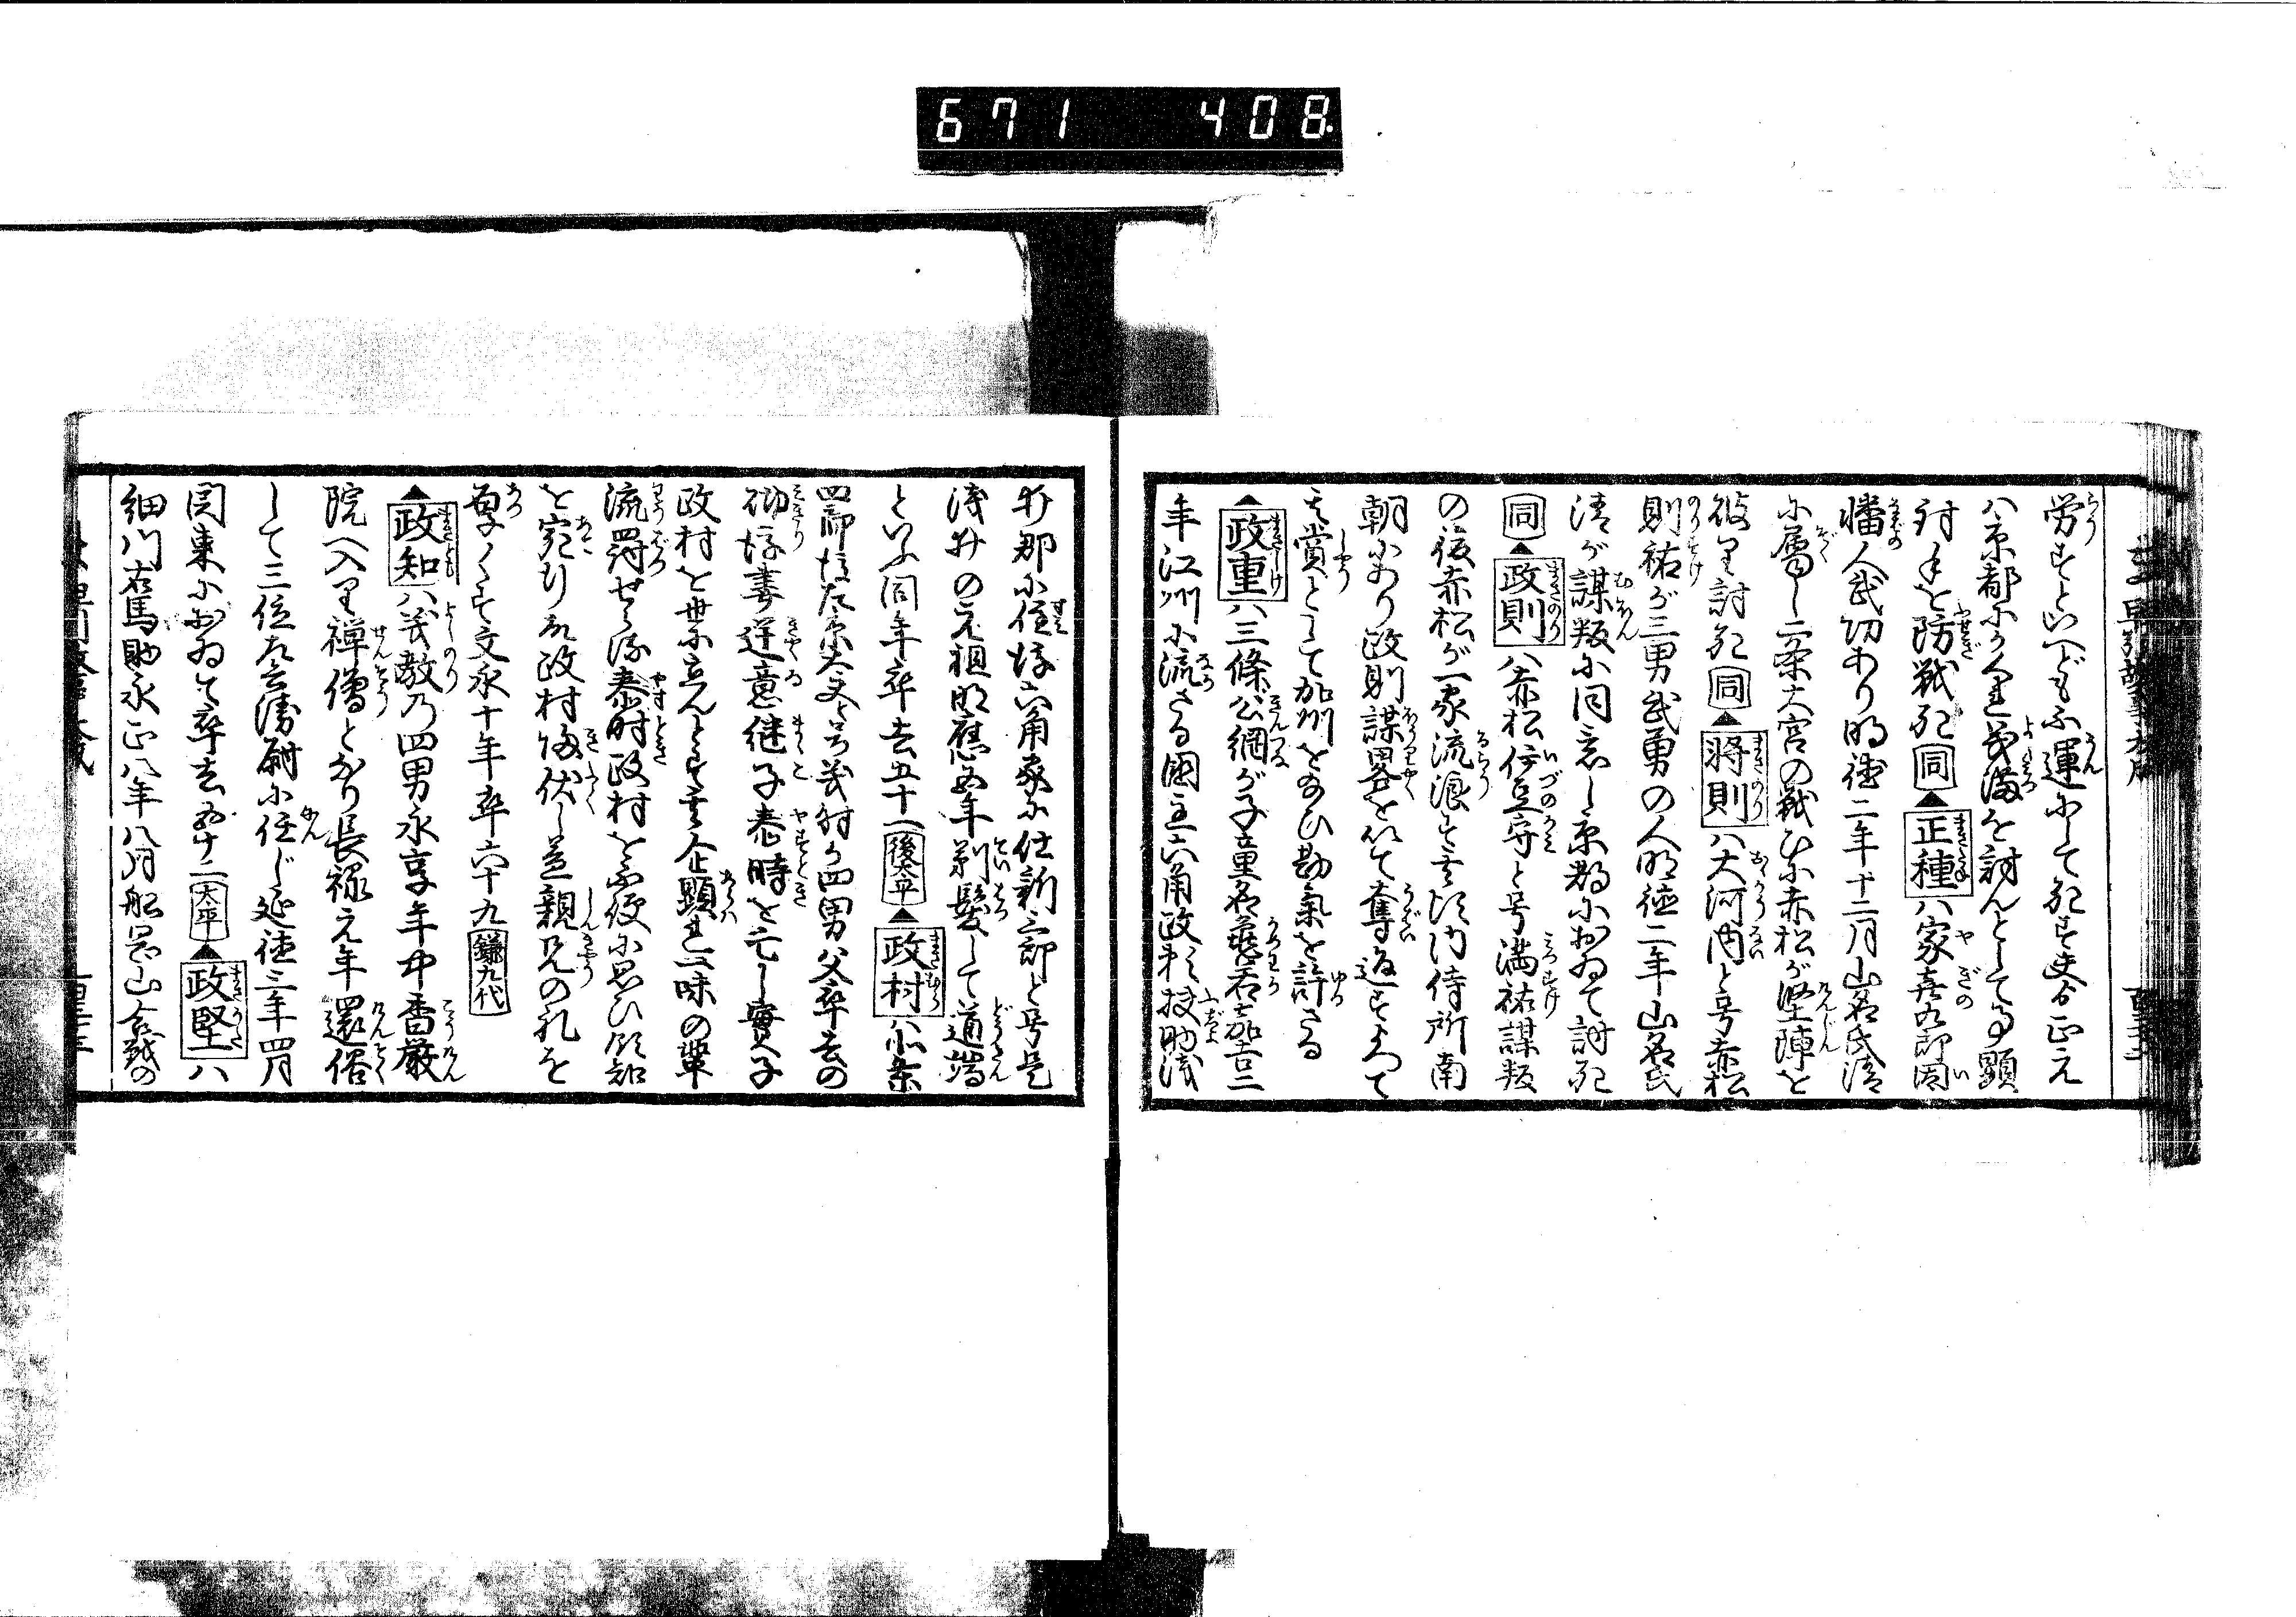 671 408
労すといへども不運にして死す
八京都にかくれ義満を討んとして事顕
討手を防戦死 同 ▲正種ハ家喜九郎因
幡人武功あり明徳二年十二月山名氏清
に属し二条大宮の戦ひに赤松が堅陣を
破り討死 同 ▲将則ハ大河内と号赤松
則祐が三男武勇の人明徳二年山名氏
清が謀叛に同意し京都において討死
同 ▲政則ハ赤松伊豆守と号満祐謀叛
の後赤松が一家流浪す其頃内侍所南
朝にあり政則謀畧を以て奪返すよつて
其賞として加州をたまひ勘氣を許さる
▲政重ハ三條公綱が子童名 嘉吉二
年江州に流さる國主六角政 扶助浅
井郡に住す後六角家に仕新三郎と号是
浅井の元祖明應五年剃髪して道端
といふ同年卒去五十一 後太平 ▲政村ハ北条
四郎後左京太夫と号義時が四男父卒去の
砌後妻逆意継子泰時を亡し實子
政村を世に立んとす其企顕れ一味の輩
流罰せらる泰時政村を
を宛行政村帰伏し益親兄の礼を
厚くす文永十年卒六十九 鎌九代
▲政知ハ義教乃四男永享年中香厳
院へ入り禅僧となり長禄元年還俗
して三位左兵衛尉に任じ延徳三年四月
関東において卒去五十二 太平 ▲政堅ハ
細川右馬助永正八年八月船岡山合戦の